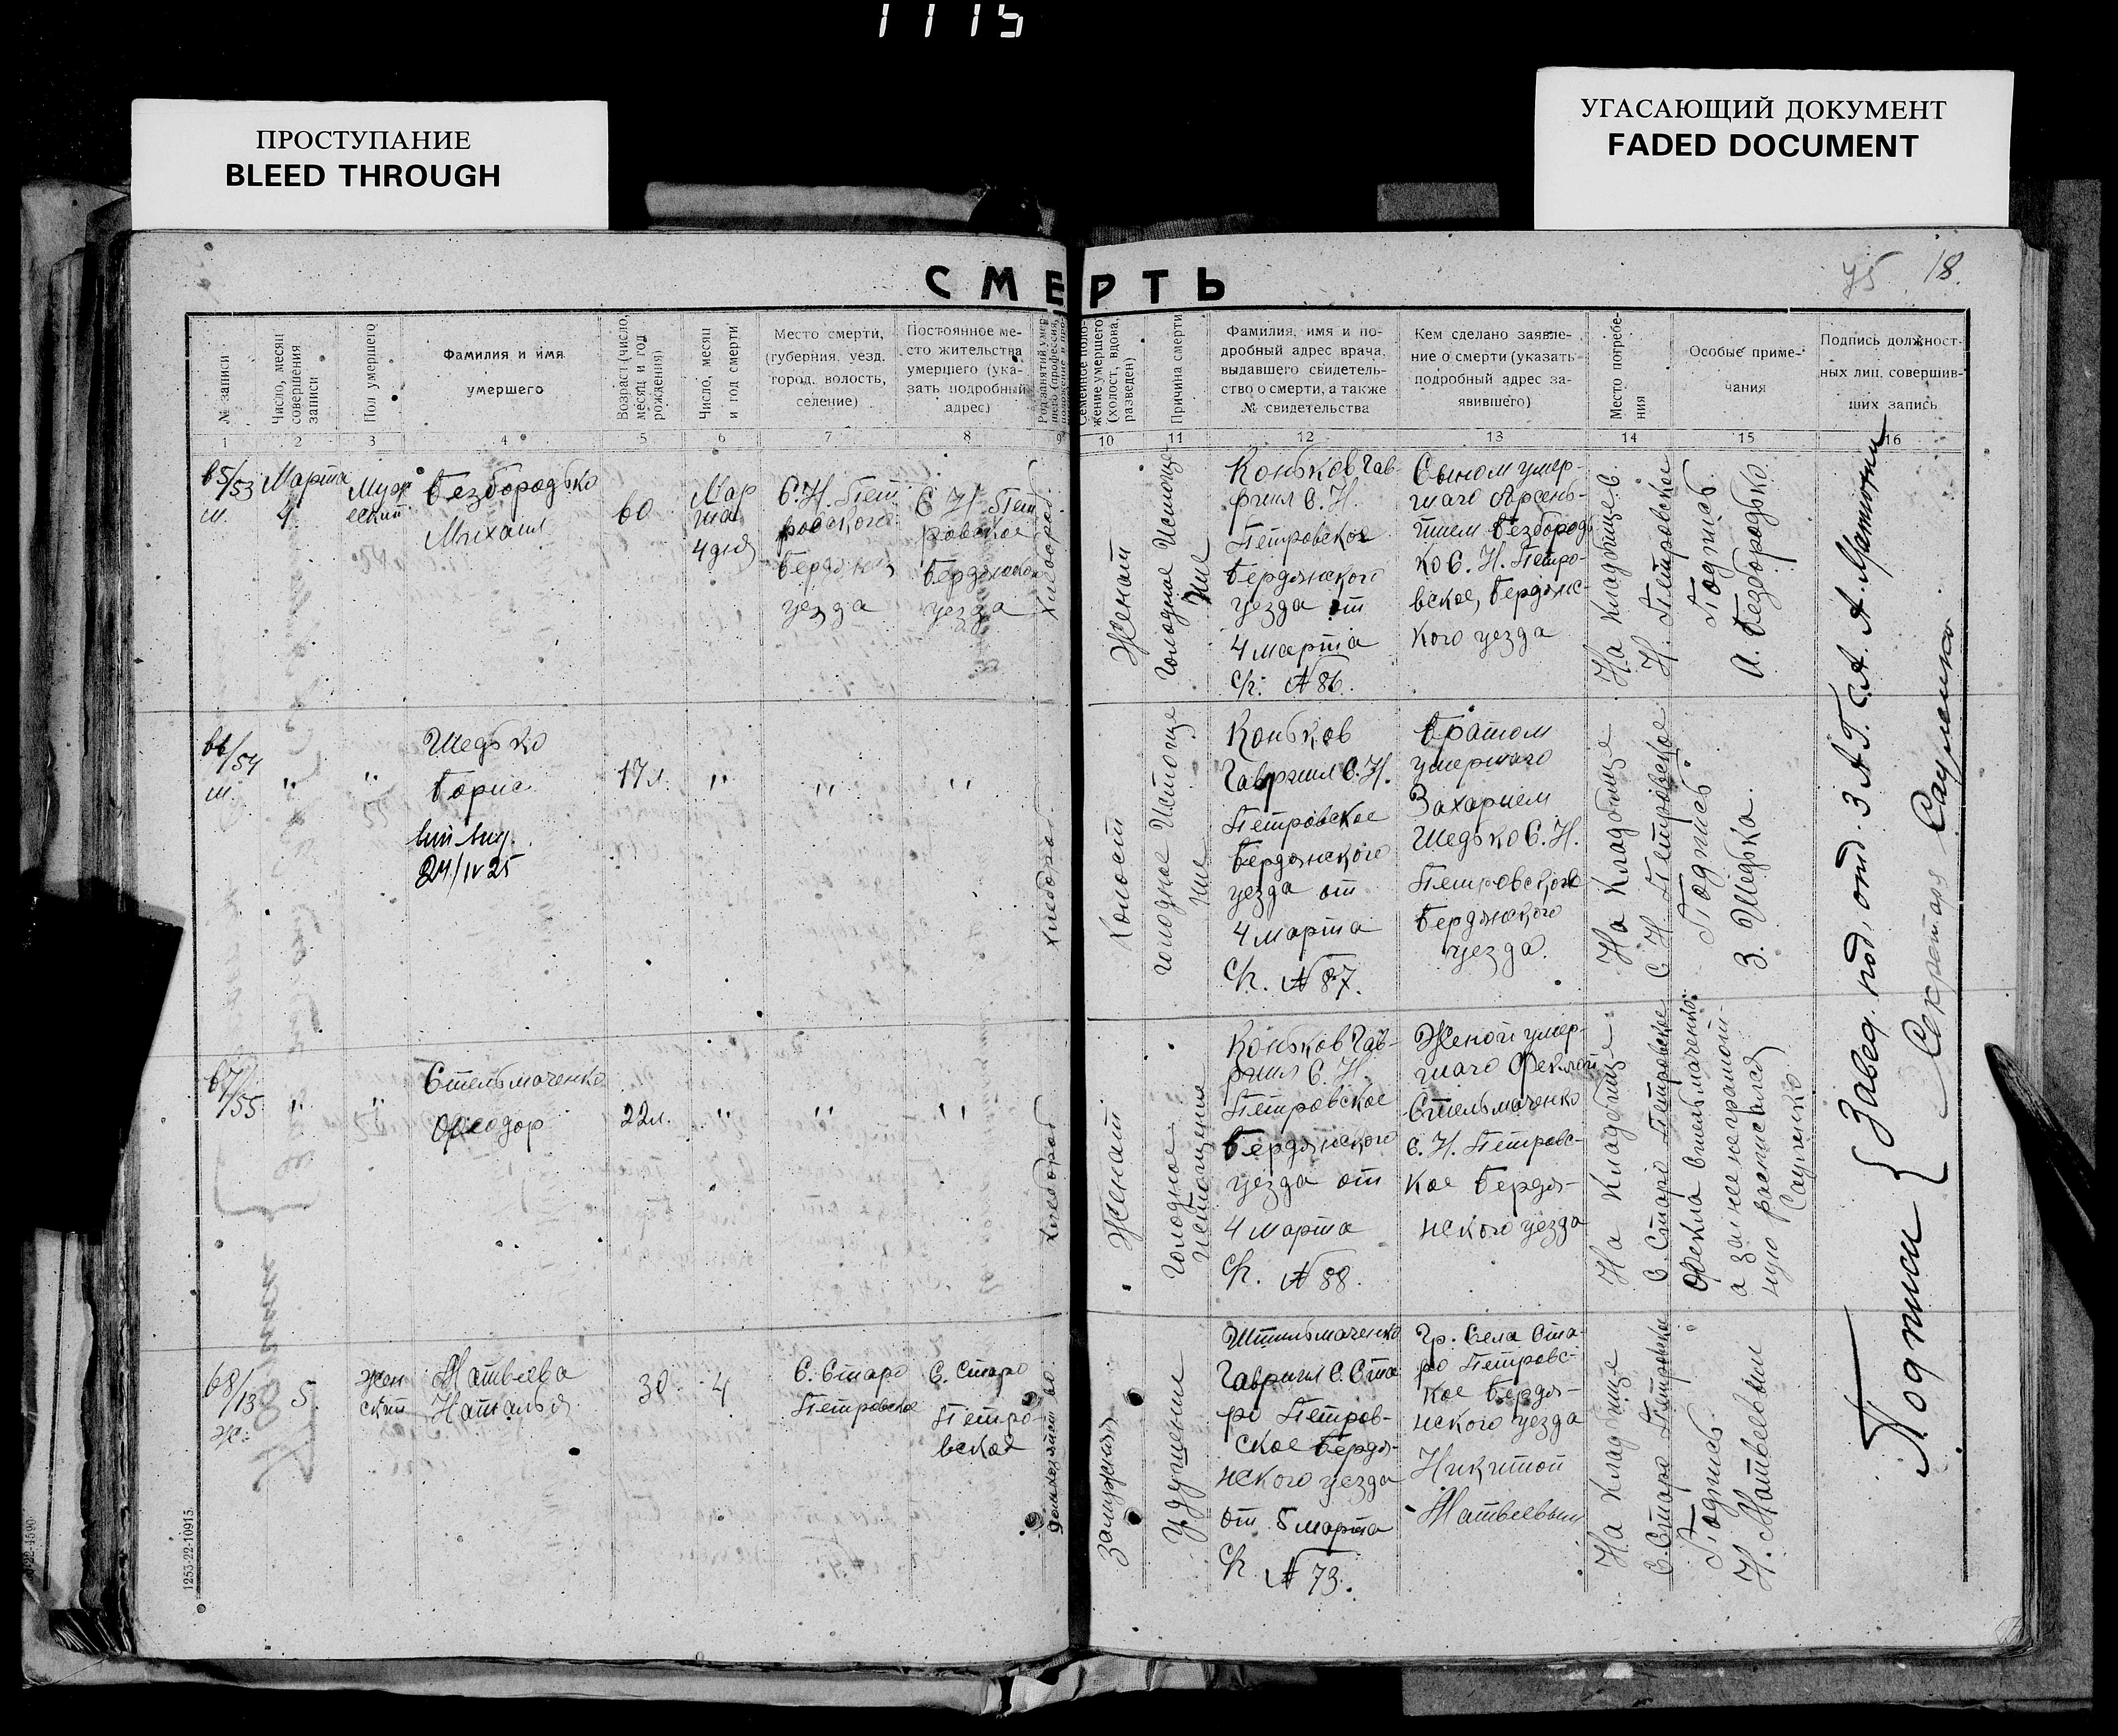 1115
ПРОСТУПАНИЕ
BLEED THROUGH
УГАСАЮЩИЙ ДОКУМЕНТ
FADED DOCUMENT
75 18.
СМЕРТЬ
№ записи
Число, месяц
совершения
записи
Пол умершего
Фамилия и имя
умершего
Возраст (число,
месяц и год
рождения)
Число, месяц
и год смерти
Место смерти,
(губерния, уезд,
город, волость,
селение)
Постоянное ме-
сто жительства
умершего (ука-
зать подробный
адрес)
Семейное поло-
жение умершего
(холост, вдова,
разведен)
Причина смерти
Фамилия, имя и по-
дробный адрес врача,
выдавшего свидетель-
ство о смерти, а также
№ свидетельства
Кем сделано заявле-
ние о смерти (указать
подробный адрес за-
явившего)
Место погребе-
ния
Особые приме-
чания
Подпись должност-
ных лиц, совершив-
ших запись
1 2 3 4 5 6 7 8 9 10 11 12 13 14 15 16
65/53
м.
Марта
4
Муж
еский
Безбородько
Михаил
60
Мар
та
4 дня
С. Н. Пет
ровского
Бердянск
уезда
С. Н. Пет
ровское
Бердянского
уезда
Хлебороб
Женат
Голодное Истоще
ние
Коньков Гав-
риил С. Н.
Петровское
Бердянского
уезда от
4 марта
Ск. № 86.
Сыном умер-
шаго Арсень-
тием Безбородь
ко С. Н. Петро-
вское, Бердянс-
кого уезда
На Кладбище С.
Н. Петровское
Подпись
А. Безбородько
66/54
м.
"
"
Шедько
Борис
24/IV 25
17 л.
"
"
"
Хлебороб
Холост
Голодное Истоще
ние
Коньков
Гавриил С. Н.
Петровское
Бердянского
уезда от
4 марта
Ск. № 87.
Братом
умершаго
Захарием
Шедько С. Н.
Петровского
Бердянского
уезда.
На Кладбище
С. Н. Петровское
Подпись
З. Шедька.
67/55
"
"
Стельмаченко
Феодор
22 л.
"
"
"
Хлебороб
Женат
Голодное
Истощение
Коньков Гав-
риил С. Н.
Петровское
Бердянского
уезда от
4 марта
Ск. № 88.
Женой умер-
шаго Феклой
Стельмаченко
С. Н. Петровс-
кое Бердя-
нского уезда
На Кладбище
С. Старо Петровское
Фекла Стельмаченко
а за нее неграмот-
ную расписался
Сауленко
68/13
ж.
5.
Жен
ский
Матвеева
Наталья
30
4
С. Старо
Петровское
С. Старо
Петро-
вское
Домохозяйство
Замужняя
Удушение
Штельмаченко
Гавриил С. Ста
ро Петров-
ское Бердя-
нского уезда
от 5 марта
Ск № 73.
Гр. Села Ста-
ро Петровс-
кое Бердя-
нского уезда
Никитой
Матвеевым
На Кладбище
С. Старо Петровское
Подпись
Н. Матвеевым
Подписи { Завед. под, отд. З А. Г. С. А. А. Матюхин
Секретарь Сауленко
1253-22-10915